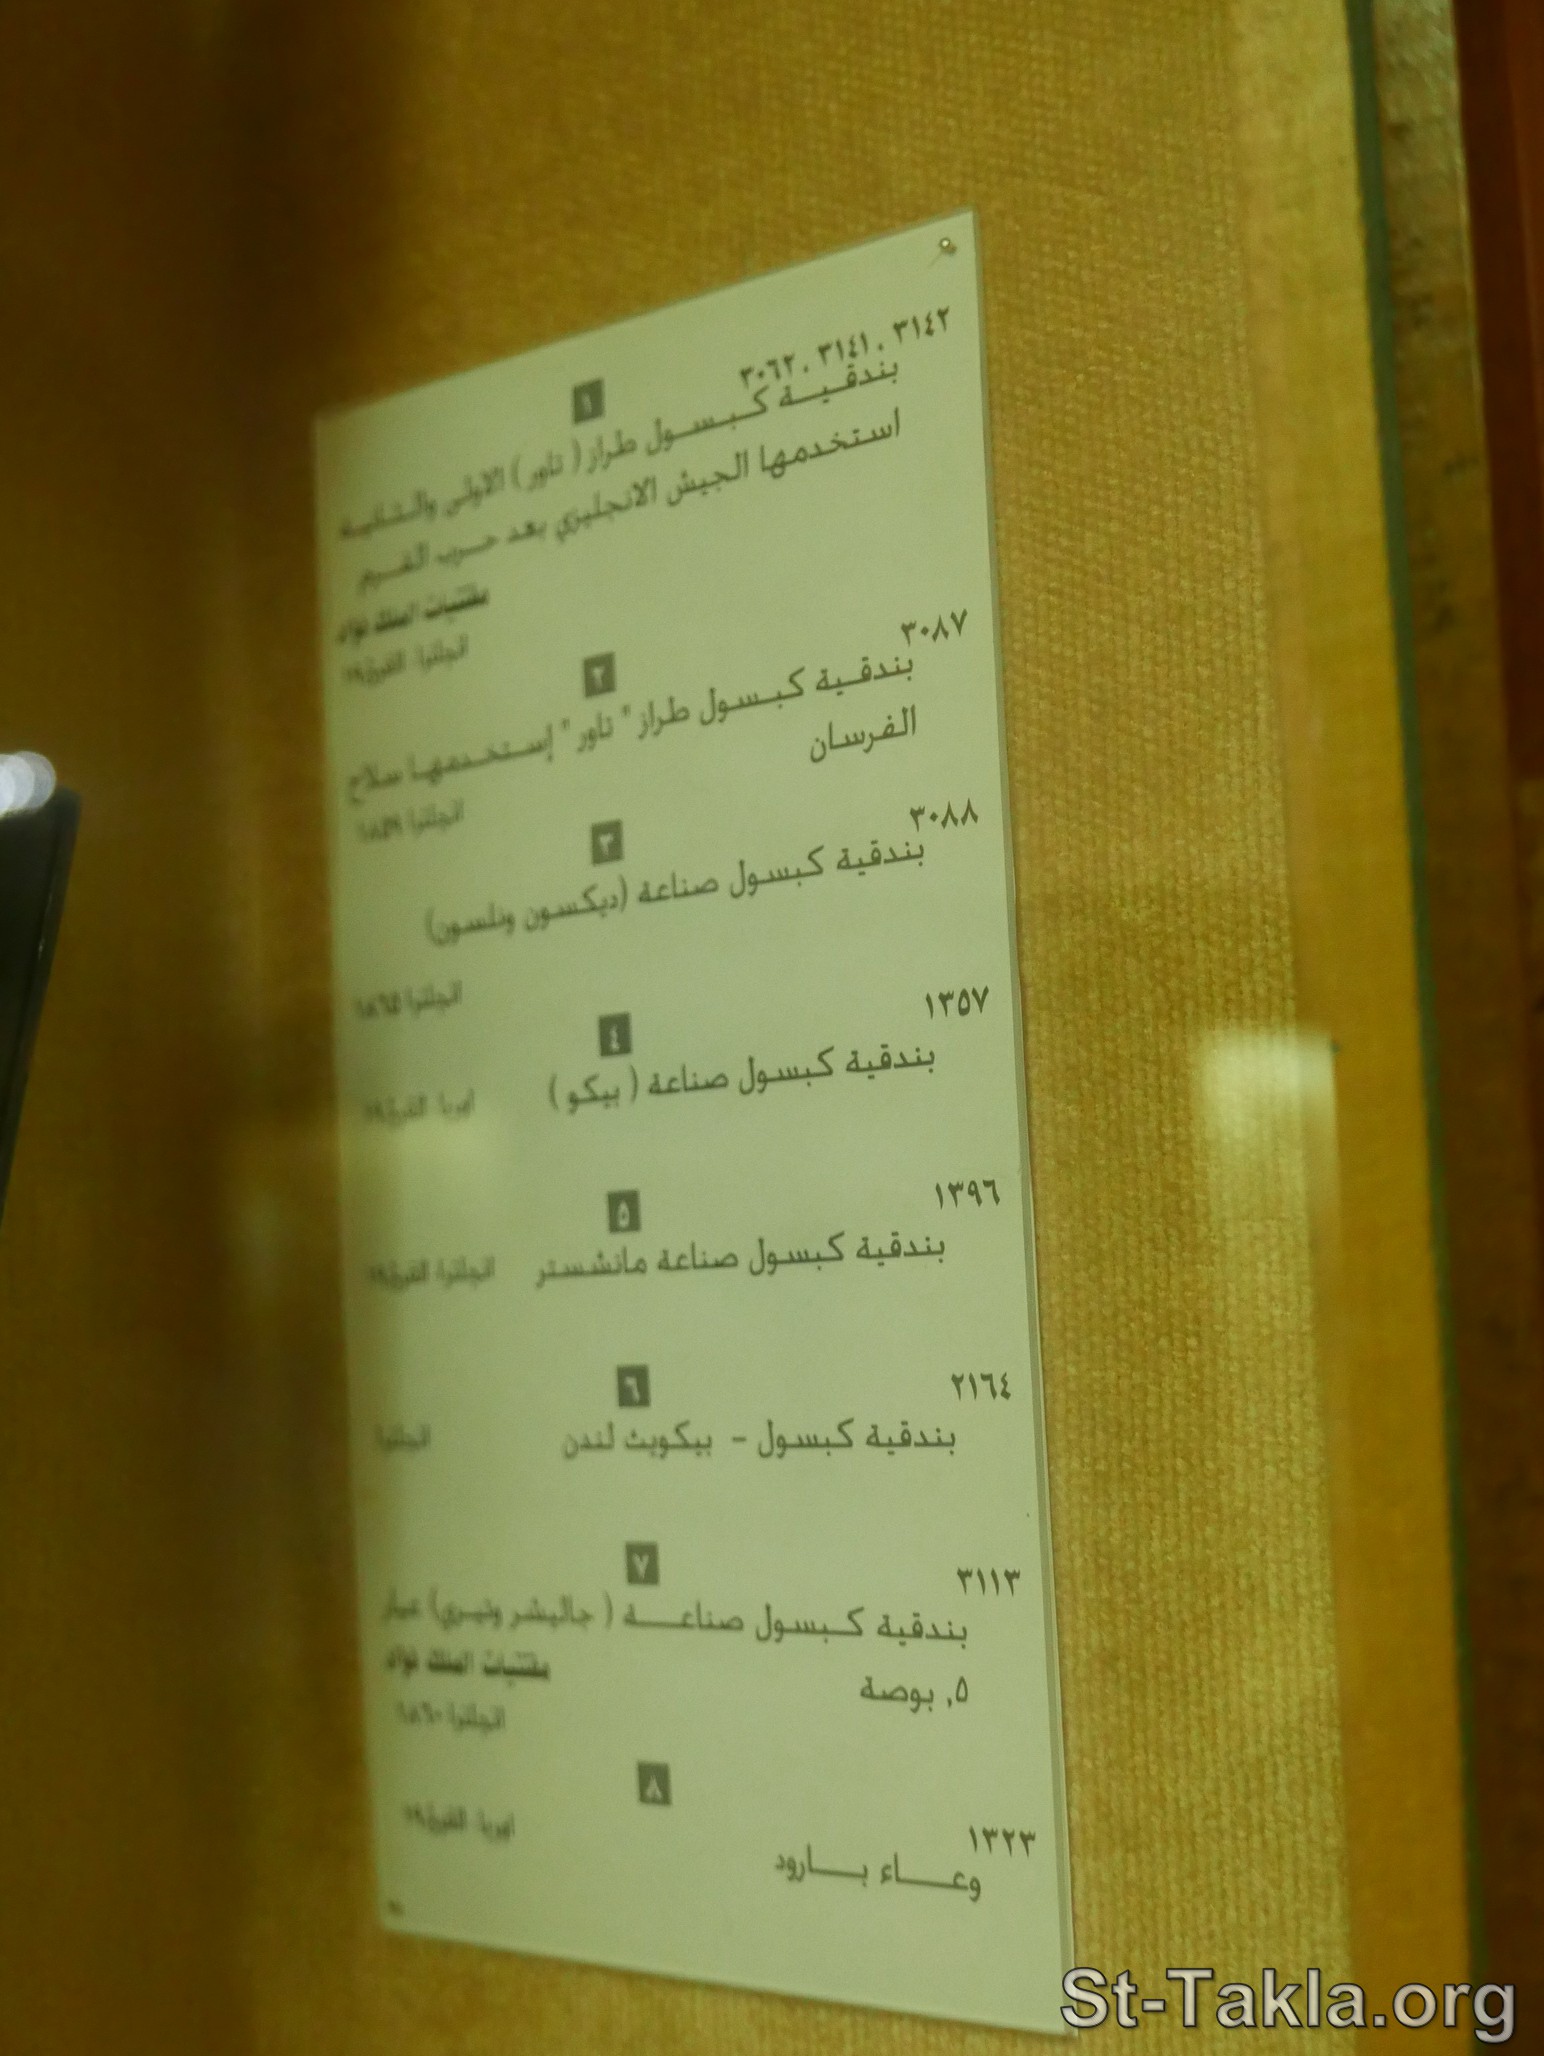 ١
٣١٤٢ ، ٣١٤١ ، ٣٠٦٢
بندقية كبسول طراز ( تاور ) الاولى والثانيه
استخدمها الجيش الانجليزي بعد حرب القرم
مقتنيات الملك فؤاد
انجلترا: القرن١٩
٢
٣٠٨٧
بندقية كبسول طراز " تاور " إستخدمها سلاح
الفرسان
انجلترا ١٨٥٩
٣
٣٠٨٨
بندقية كبسول صناعة (ديكسون ونلسون)
انجلترا ١٨٦٥
٤
١٣٥٧
بندقية كبسول صناعة ( بيكو ) اوربا: القرن١٩
٥
١٣٩٦
بندقية كبسول صناعة مانشستر انجلترا: القرن١٩
٦
٢١٦٤
بندقية كبسول - بيكويث لندن انجلترا
٧
٣١١٣
بندقية كبسول صناعة ( جاليشر وتيري) عيار
٥, بوصة
مقتنيات الملك فؤاد
انجلترا ١٨٦٠
٨
١٣٢٣
وعاء بارود اوربا: القرن١٩
St-Takla.org